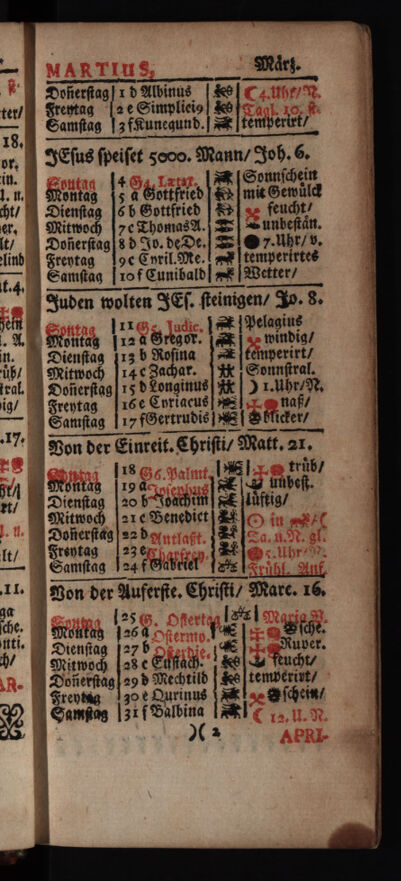 MARTIUS, Märtz.
Doñerstag 1 d Albinus ☾ 4. Uhr/ N.
Freytag 2 e Simplici9 Tagl. 10. st.
Samstag 3 f Kunegund. temperirt/
JEsus speiset 5000. Mann/ Joh. 6.
Sontag 4 G4. Lætar. Sonnschein
Montag 5 a Gottfried mit Gewülck
Dienstag 6 b Gottfried feucht/
Mitwoch 7 c Thomas A. unbestän.
Doñerstag 8 d Jo. de De. 7. Uhr/ v.
Freytag 9 c Cyril. Me. temperirtes
Samstag 10 f Cunibald Wetter/
Juden wolten JEs. steinigen/ Jo. 8.
Sontag 11 G5. Judic. Pelagius
Montag 12 a Gregor. windig/
Dienstag 13 b Rosina temperirt/
Mitwoch 14 c Zachar. Sonnstral.
Doñerstag 15 d Longinus ☽ 1. Uhr/ N.
Freytag 16 e Cyriacus naß/
Samstag 17 f Gertrudis blicker/
Von der Einreit. Christi/ Matt. 21.
Sontag 18 G6. Palmt. trüb/
Montag 19 a Josephus unbest.
Dienstag 20 b Joachim lüftig/
Mitwoch 21 c Benedict ☉ in
Doñerstag 22 d Antlaßt. Ta. u. N. gl.
Freytag 23 e Charfrey. 5. Uhr/ N.
Samstag 24 f Gabriel Frühl. Anf.
Von der Auferste. Christi/ Marc. 16.
Sontag 25 G. Ostertag Maria V.
Montag 26 a Ostermo. Esche.
Dienstag 27 b Osterdie. Ruper.
Mitwoch 28 c Eustach. feucht/
Doñerstag 29 d Mechtild temperirt/
Freytag 30 e Quirinus schein/
Samstag 31 f Balbina ☾ 12. U. N.
)( 2 APRI-